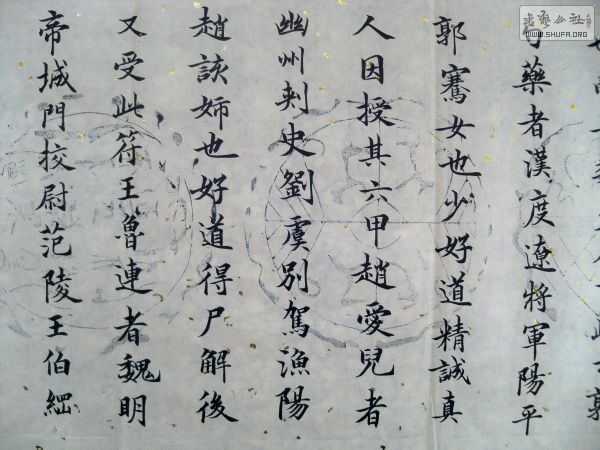 書藝公社
WWW.SHUFA.ORG
藥者漢度遼將軍陽平
郭騫女也少好道精誠真
人因授其六甲趙愛兒者
幽州刾史劉虞別駕漁陽
趙該姊也好道得尸解後
又受此符王魯連者魏明
帝城門校尉范陵王伯綱